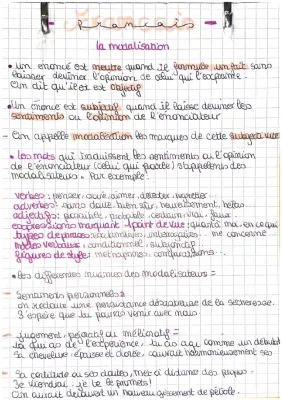 Francais
la modalisation
• un énoncé est neutre quand il formule un fait sans
laisser deviner l'opinion de celui qui s'exprime.
On dit qu'il est objectif
• Un énoncé est subjectif quand il laisse deviner les
sentiments ou l'opinion de l'énonciateur
- On appelle modalisation les marques de cette subjectivité
• Les mots qui traduisent les sentiments ou l'opinion
de l'énonciateur (celui qui parle) s'appellent des
modalisateurs. Par exemple:
verbes: penser, croire, aimer, détester, regretter
adverbes: sans doute, bien sûr, heureusement, hélas
adjectifs: probable, certain, vrai, faux
expressions marquant 1 point de vue: quant à moi, en ce qui
types de phrases: exclamatives, interrogatives.. me concerne
modes verbaux: conditionnel, subjonctif
figures de style: métaphores, comparaisons...
• Les différentes nuances des modalisateurs =
Sentiment personnels:
on réclame une persistance désastreuse de la sécheresse.
J'espère que tu pourras venir avec moi.
jugement, péjoratif ou mélioratif =
Toi qui as de l'expérience, tu as agi comme un débutant
Sa chevelure épaisse et dorée, couvrait harmonieusement ses
Sa certitude ou ses doutes, met à distance des propos
Je viendrai, je te le promets!
On aurait découvert un nouveau gisement de pétrole.